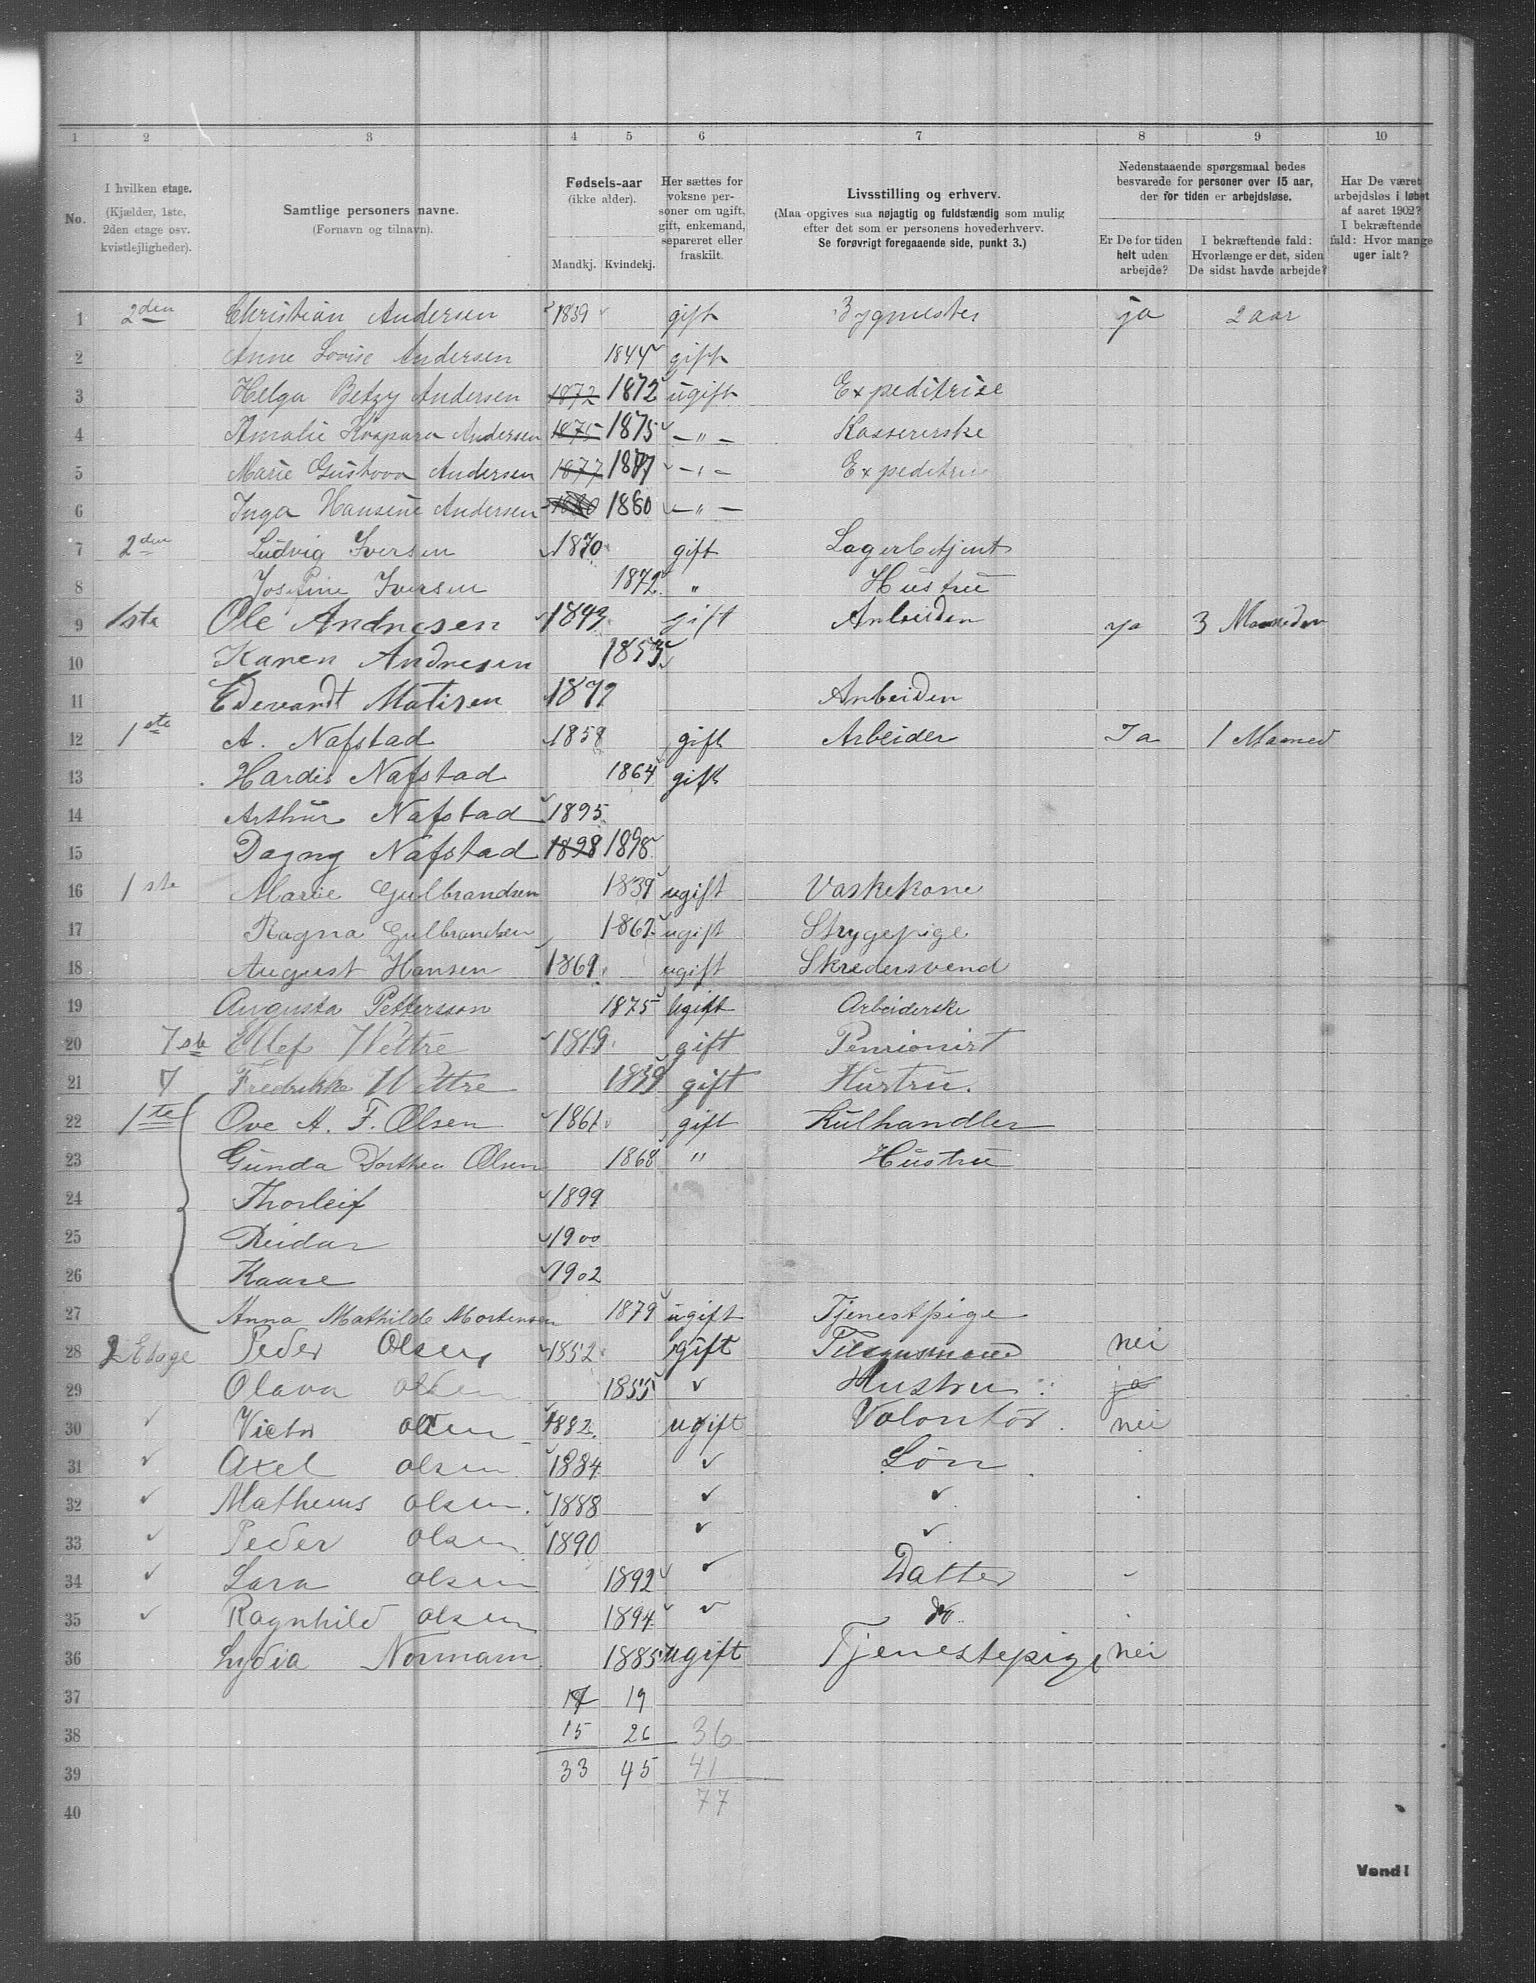 1 2 3 4 5 6 7 8 9 10
No.
I hvilken etage.
(Kjælder, 1ste,
2den etage osv.
kvistlejligheder).
Samtlige personers navne.
(Fornavn og tilnavn).
Fødsels-aar
(ikke alder).
Mandkj. Kvindekj.
Her sættes for
voksne per-
soner om ugift,
gift, enkemand,
separeret eller
fraskilt.
Livsstilling og erhverv.
(Maa opgives saa nøjagtig og fuldstændig som mulig
efter det som er personens hovederhverv.
Se forøvrigt foregaaende side, punkt 3.)
Nedenstaaende spørgsmaal bedes
besvarede for personer over 15 aar,
der for tiden er arbejdsløse.
Er De for tiden
helt uden
arbejde?
I bekræftende fald:
Hvorlænge er det, siden
De sidst havde arbejde?
Har De været
arbejdsløs i løbet
af aaret 1902?
I bekræftende
fald: Hvor mange
uger ialt?
1 2den Christian Andersen 1839 gift Bygmester ja 2 aar
2 Anne Lovise Andersen 1844 gift
3 Helga Betzy Andersen 1872 1872 ugift Expeditrise
4 Amalie Kaspara Andersen 1875 1875 – " – Kassererske
5 Marie Gustava Andersen 1877 1877 – " – Expeditrise
6 Inga Hansine Andersen 1880 1880 – " –
7 2den Ludvig Iversen 1870 gift Lagerbetjent
8 Josefine Iversen 1872 " Hustru
9 1ste Ole Andresen 1849 gift Arbeider ja 3 Maaneder
10 Karen Andresen 1853
11 Edevardt Matisen 1872 Arbeider
12 1ste A. Nafstad 1858 gift Arbeider Ja 1 Maaned
13 Hardis Nafstad 1864 gift
14 Arthur Nafstad 1895
15 Dagny Nafstad 1898 1898
16 1ste Marie Gulbrandsen 1839 ugift Vaskekone
17 Ragna Gulbrandsen 1862 ugift Strygepige
18 August Hansen 1869 ugift Skredersvend
19 Augusta Pettersson 1875 Ugift Arbeiderske
20 1ste Ellef Wettre 1819 gift Pensionist
21 Fredrikke Wettre 1839 gift Hustru.
22 1ste Ove A. F. Olsen 1861 gift Kulhandler
23 Gunda Dorthea Olsen 1868 " Hustru
24 Thorleif 1899
25 Reidar 1900
26 Kaare 1902
27 Anna Mathilde Mortensen 1879 ugift Tjenestpige
28 2 Etage Peder Olsen 1852 gift nei
29 Olava Olsen 1855 Hustru ja
30 Victor Olsen 1882 ugift Volontør nei
31 Axel Olsen 1884 Søn
32 Matheus Olsen. 1888
33 Peder Olsen 1890
34 Sara Olsen 1892 Datter
35 Ragnhild Olsen 1894 do
36 Lydia Normann 1885 ugift Tjenestepige nei
37 17 19
38 15 26 36
39 33 45 41
40 77
Vend!